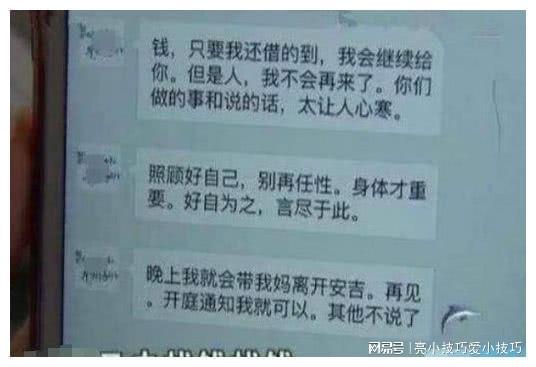 钱，只要我还借的到，我会继续给
你。但是人，我不会再来了。你们
做的事和说的话，太让人心寒。
照顾好自己，别再任性。身体才重
要。好自为之，言尽于此。
晚上我就会带我妈离开安吉。再见
。开庭通知我就可以。其他不说了
搜狐号@亮小技巧爱小技巧